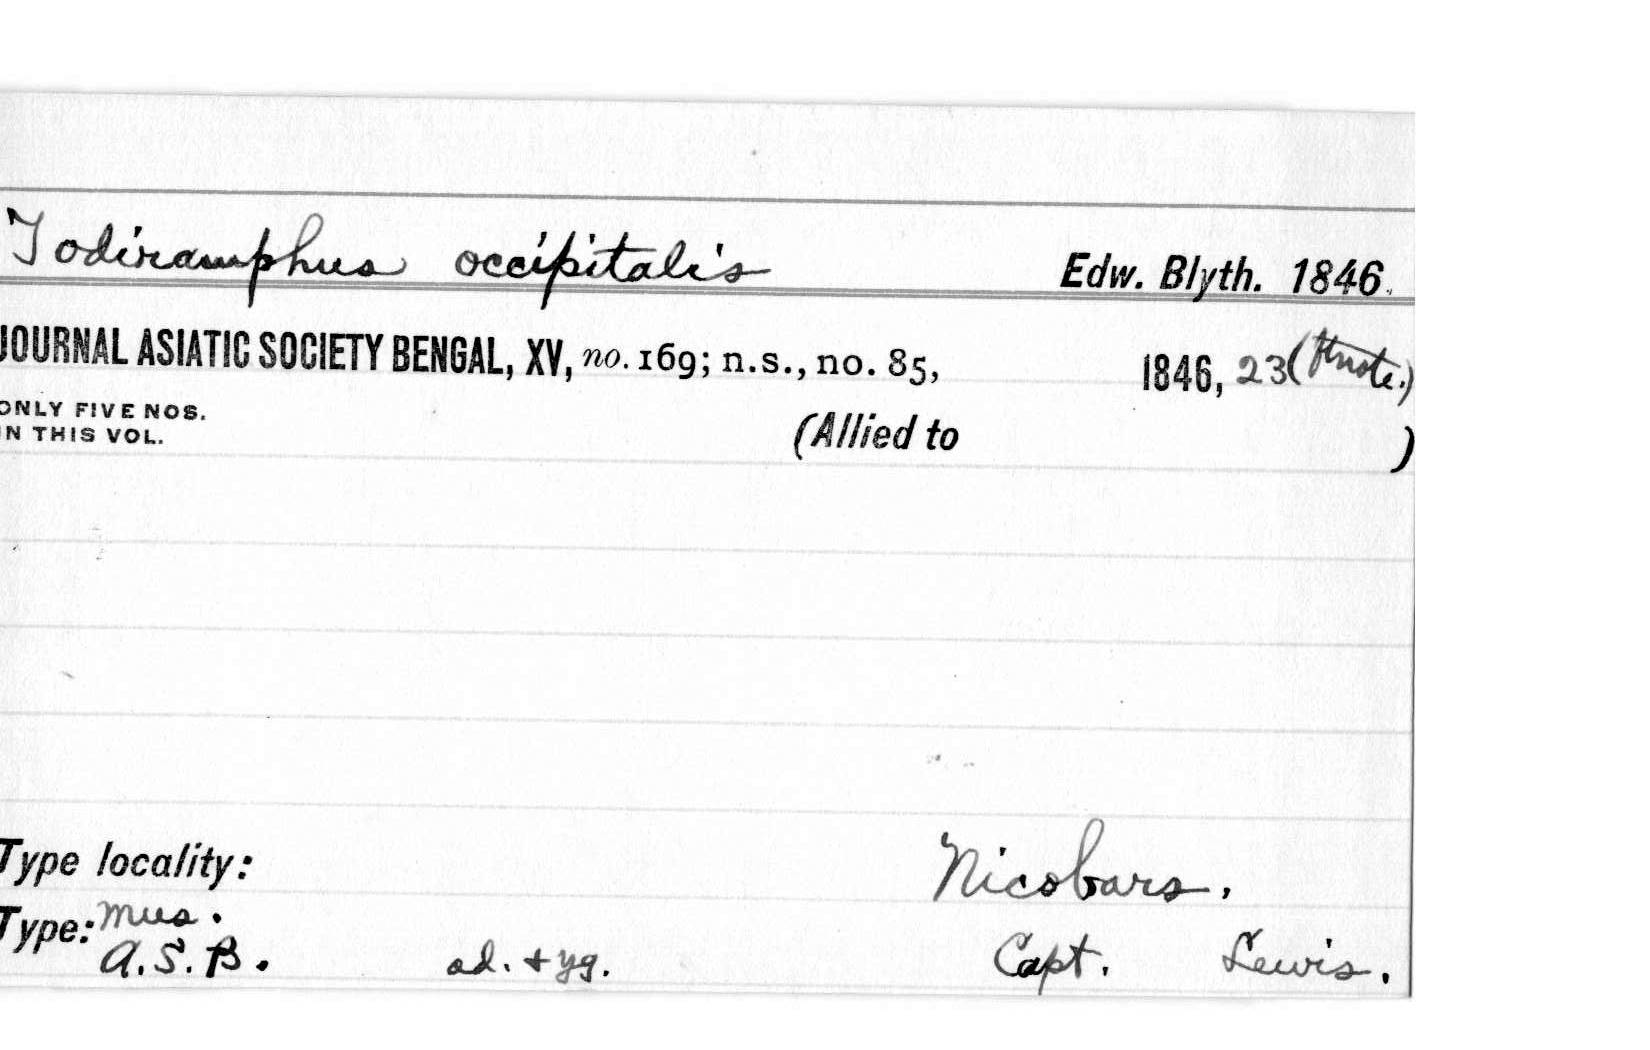 Todiramphus occipitalis Edw. Blyth. 1846.
JOURNAL ASIATIC SOCIETY BENGAL, XV, no. 169; n.s., no. 85, 1846, 23 (ftnote.)
ONLY FIVE NOS.
IN THIS VOL.
(Allied to )
Type locality: Nicobars.
Type: Mus.
A.S.B. ad. + yg. Capt. Lewis.